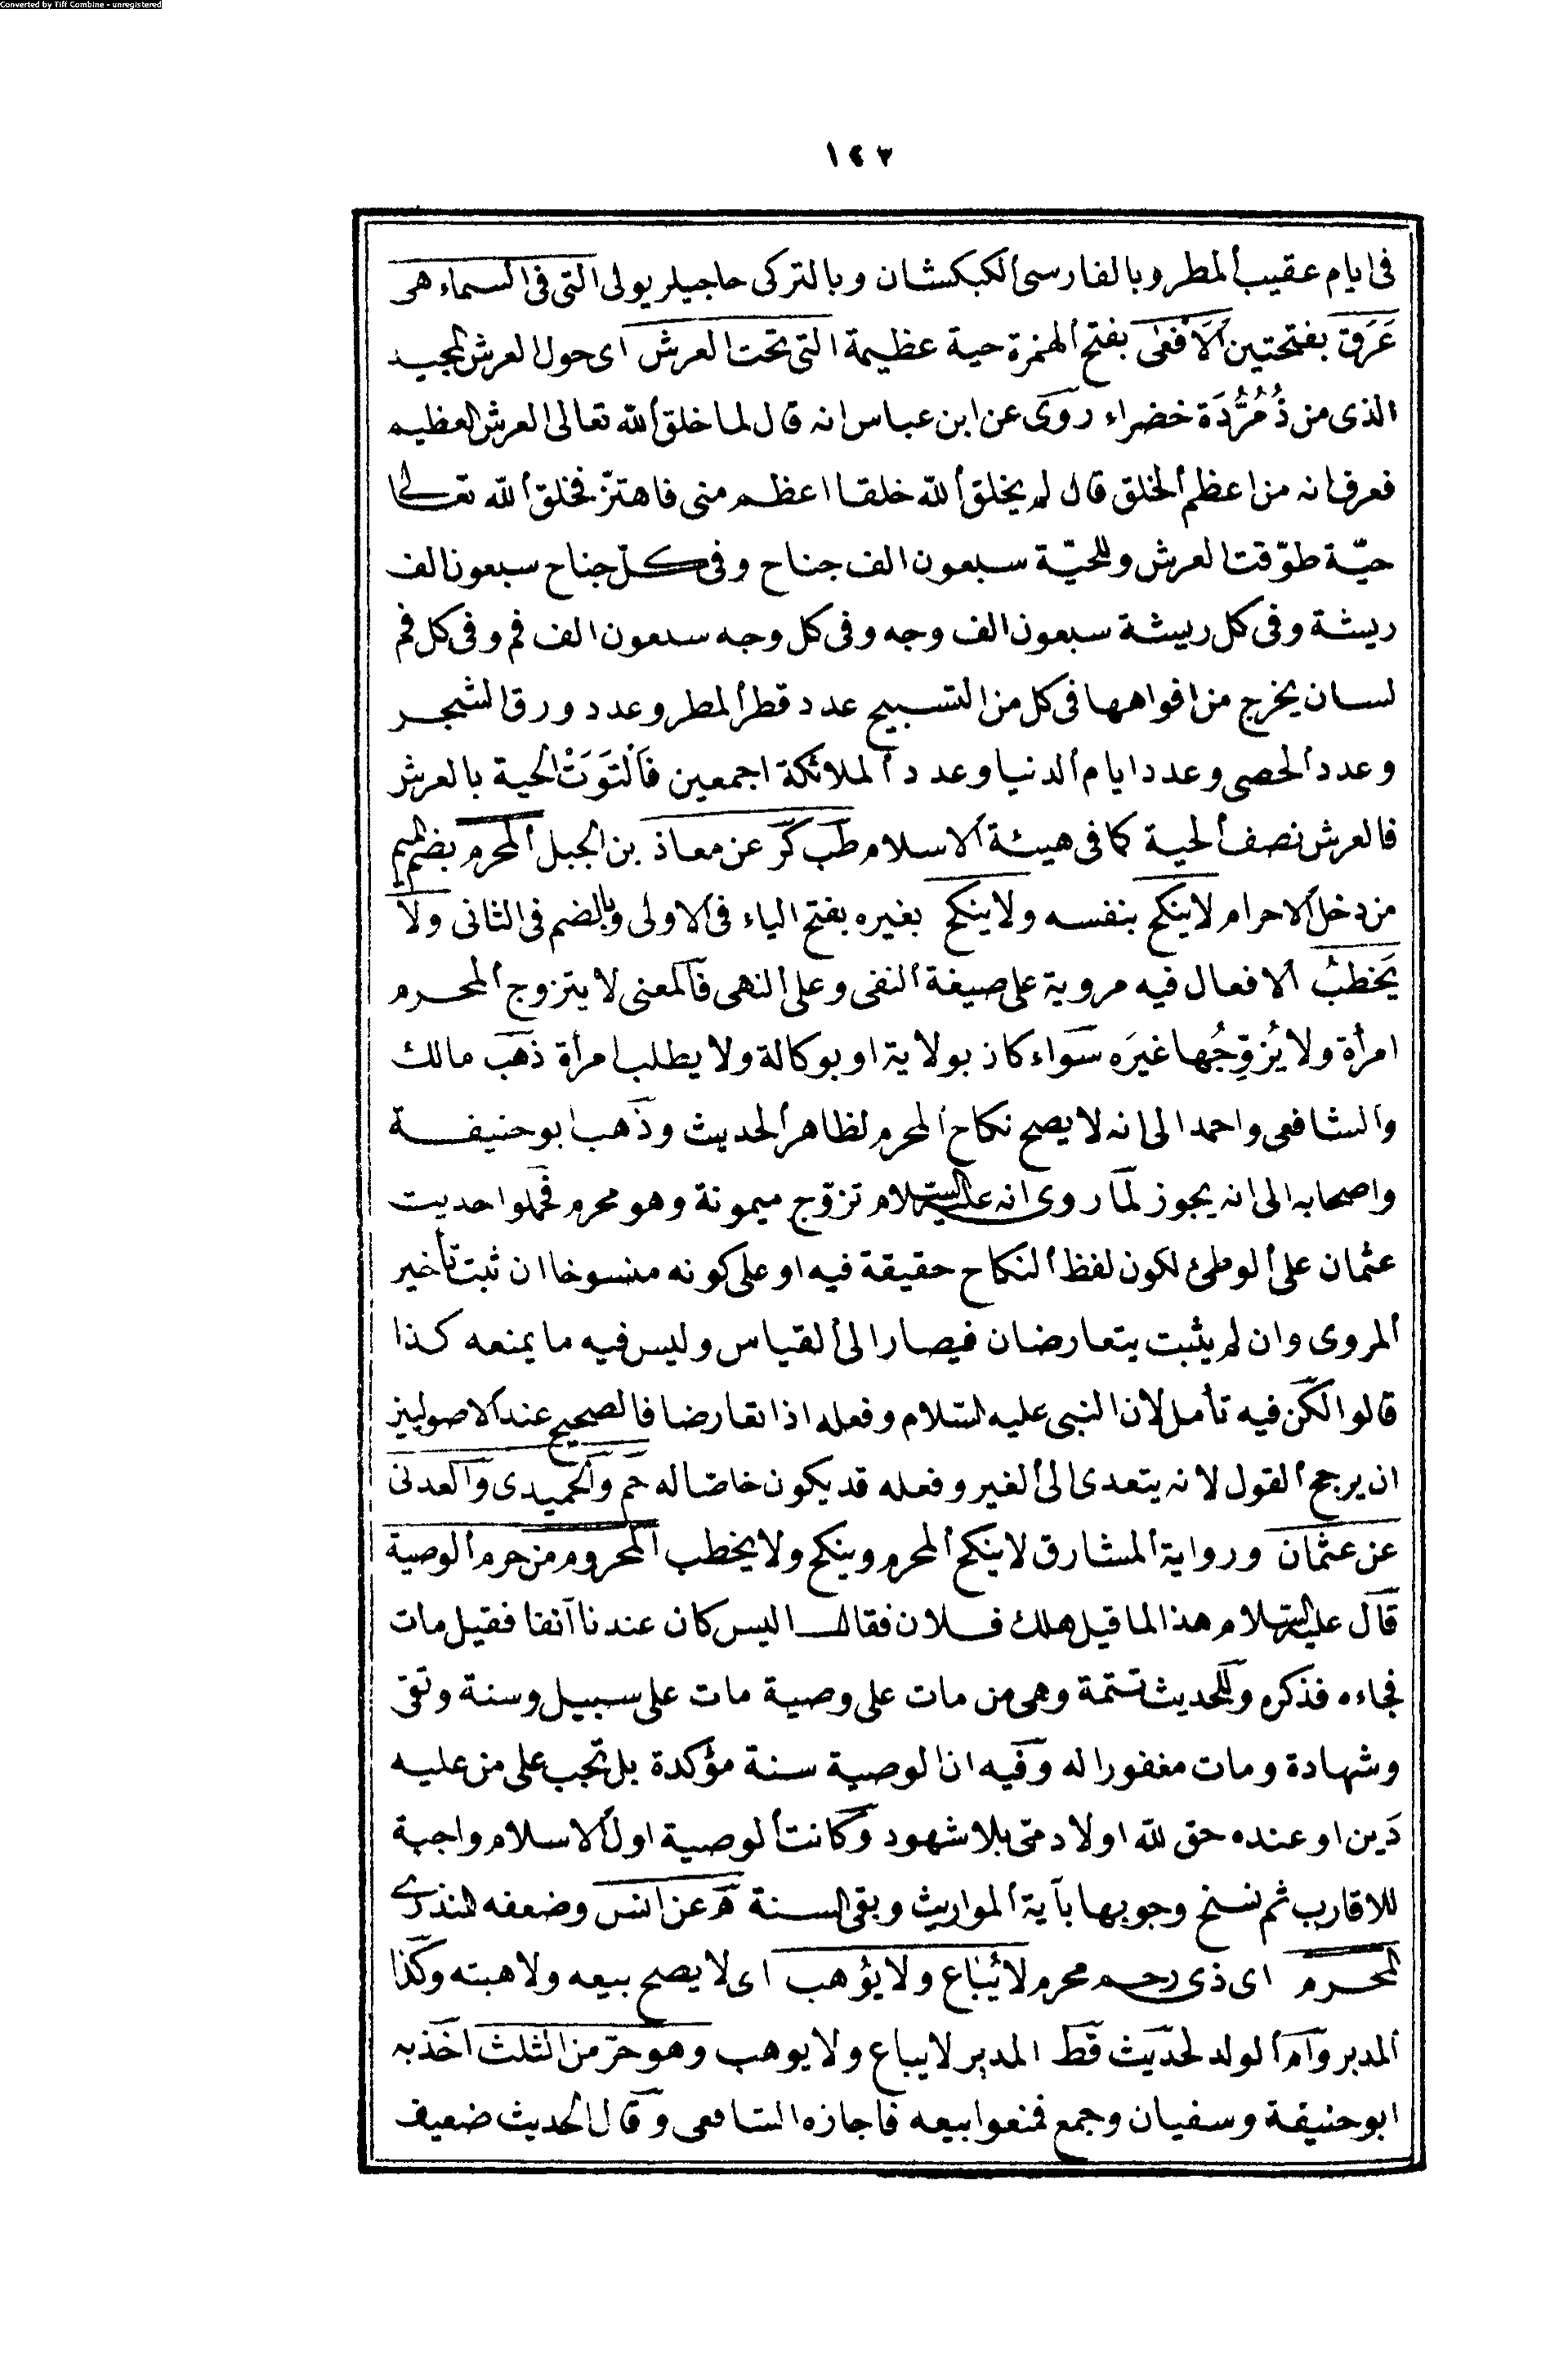 Converted by Tiff Combine - unregistered
١٤٣
فى ايام عقيب المطر وبالفارسى الكبكشان وبالتركى حاجيلر يولى التى فى السماء هى
عَرَق بفتحتين اَلاَفْعٰى بفتح الهمزة حية عظيمة التى تحت العرش اى حول العرش المجيد
الذى من ذُمُرُّدَة خضراء روى عن ابن عباس انه قال لما خلق الله تعالى العرش العظيم
فعرف انه من اعظم الخلق قال لم يخلق الله خلقا اعظم منى فاهتزّ فخلق الله تعالى
حيّة طوّقت العرش وللحيّة سبعون الف جناح وفى كلّ جناح سبعون الف
ريشة وفى كل ريشة سبعون الف وجه وفى كل وجه سبعون الف فم وفى كل فم
لسان يخرج من افواهها فى كل من التسبيح عدد قطر المطر وعدد ورق الشجر
وعدد الحصى وعدد ايام الدنيا وعدد الملائكة اجمعين فَالْتَوَتْ الحية بالعرش
فالعرش نصف الحية كما فى هيئة الاسلام طب كر عن معاذ بن الجبل المحرم بضم الميم
من دخل الاحرام لا ينكح بنفسه ولا ينكح بغيره بفتح الياء فى الاولى وبالضم فى الثانى ولا
يَخطبُ الافعال فيه مروية على صيغة النفى وعلى النهى فالمعنى لا يتزوج المحرم
امرأة ولا يُزوِّجُها غيرَه سواء كان بولاية او بوكالة ولا يطلب امرأة ذهب مالك
والشافعى واحمد الى انه لا يصح نكاح المحرم لظاهر الحديث وذهب ابو حنيفة
واصحابه الى انه يجوز لما روى انه عليه السلام تزوّج ميمونة وهو محرم فحملوا حديث
عثمان على الوطئ لكون لفظ النكاح حقيقة فيه او على كونه منسوخا ان ثبت تأخير
المروى وان لم يثبت يتعارضان فيصار الى القياس وليس فيه ما يمنعه كذا
قالوا لكن فيه تأمل لان النبى عليه السلام وفعله اذا تعارضا فالصحيح عند الاصوليين
ان يرجح القول لانه يتعدى الى الغير وفعله قد يكون خاصّا له حم والحميدى والعدنى
عن عثمان ورواية المشارق لا ينكح المحرم وينكح ولا يخطب المحروم من حرم الوصية
قال عليه السلام هذا لما قيل هلك فلان فقال اليس كان عندنا آنفا فقيل مات
فجاءه فذكره وللحديث تتمة وهى من مات على وصية مات على سبيل وسنة وتقى
وشهادة ومات مغفورا له وفيه ان الوصية سنة مؤكدة بل تجب على من عليه
دَين او عنده حق لله او لادمىّ بلا شهود وكانت الوصية اول الاسلام واجبة
للاقارب ثم نسخ وجوبها بآية المواريث وبقى السنة ه عن انس وضعفه المنذرى
المحرم اى ذى رحم محرم لا يُبَاع ولا يؤهب اى لا يصح بيعه ولا هبته وكذا
المدبر وام الولد لحديث قط المدبر لا يباع ولا يوهب وهو حرّ من الثلث اخذ به
ابو حنيفة وسفيان وجمع فمنعوا بيعه فاجازه الشافعى وقال الحديث ضعيف